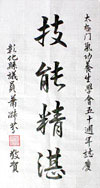 太極門氣功養生學會五十週年誌慶
技能精湛
彰化縣議員蕭淑芬
敬賀